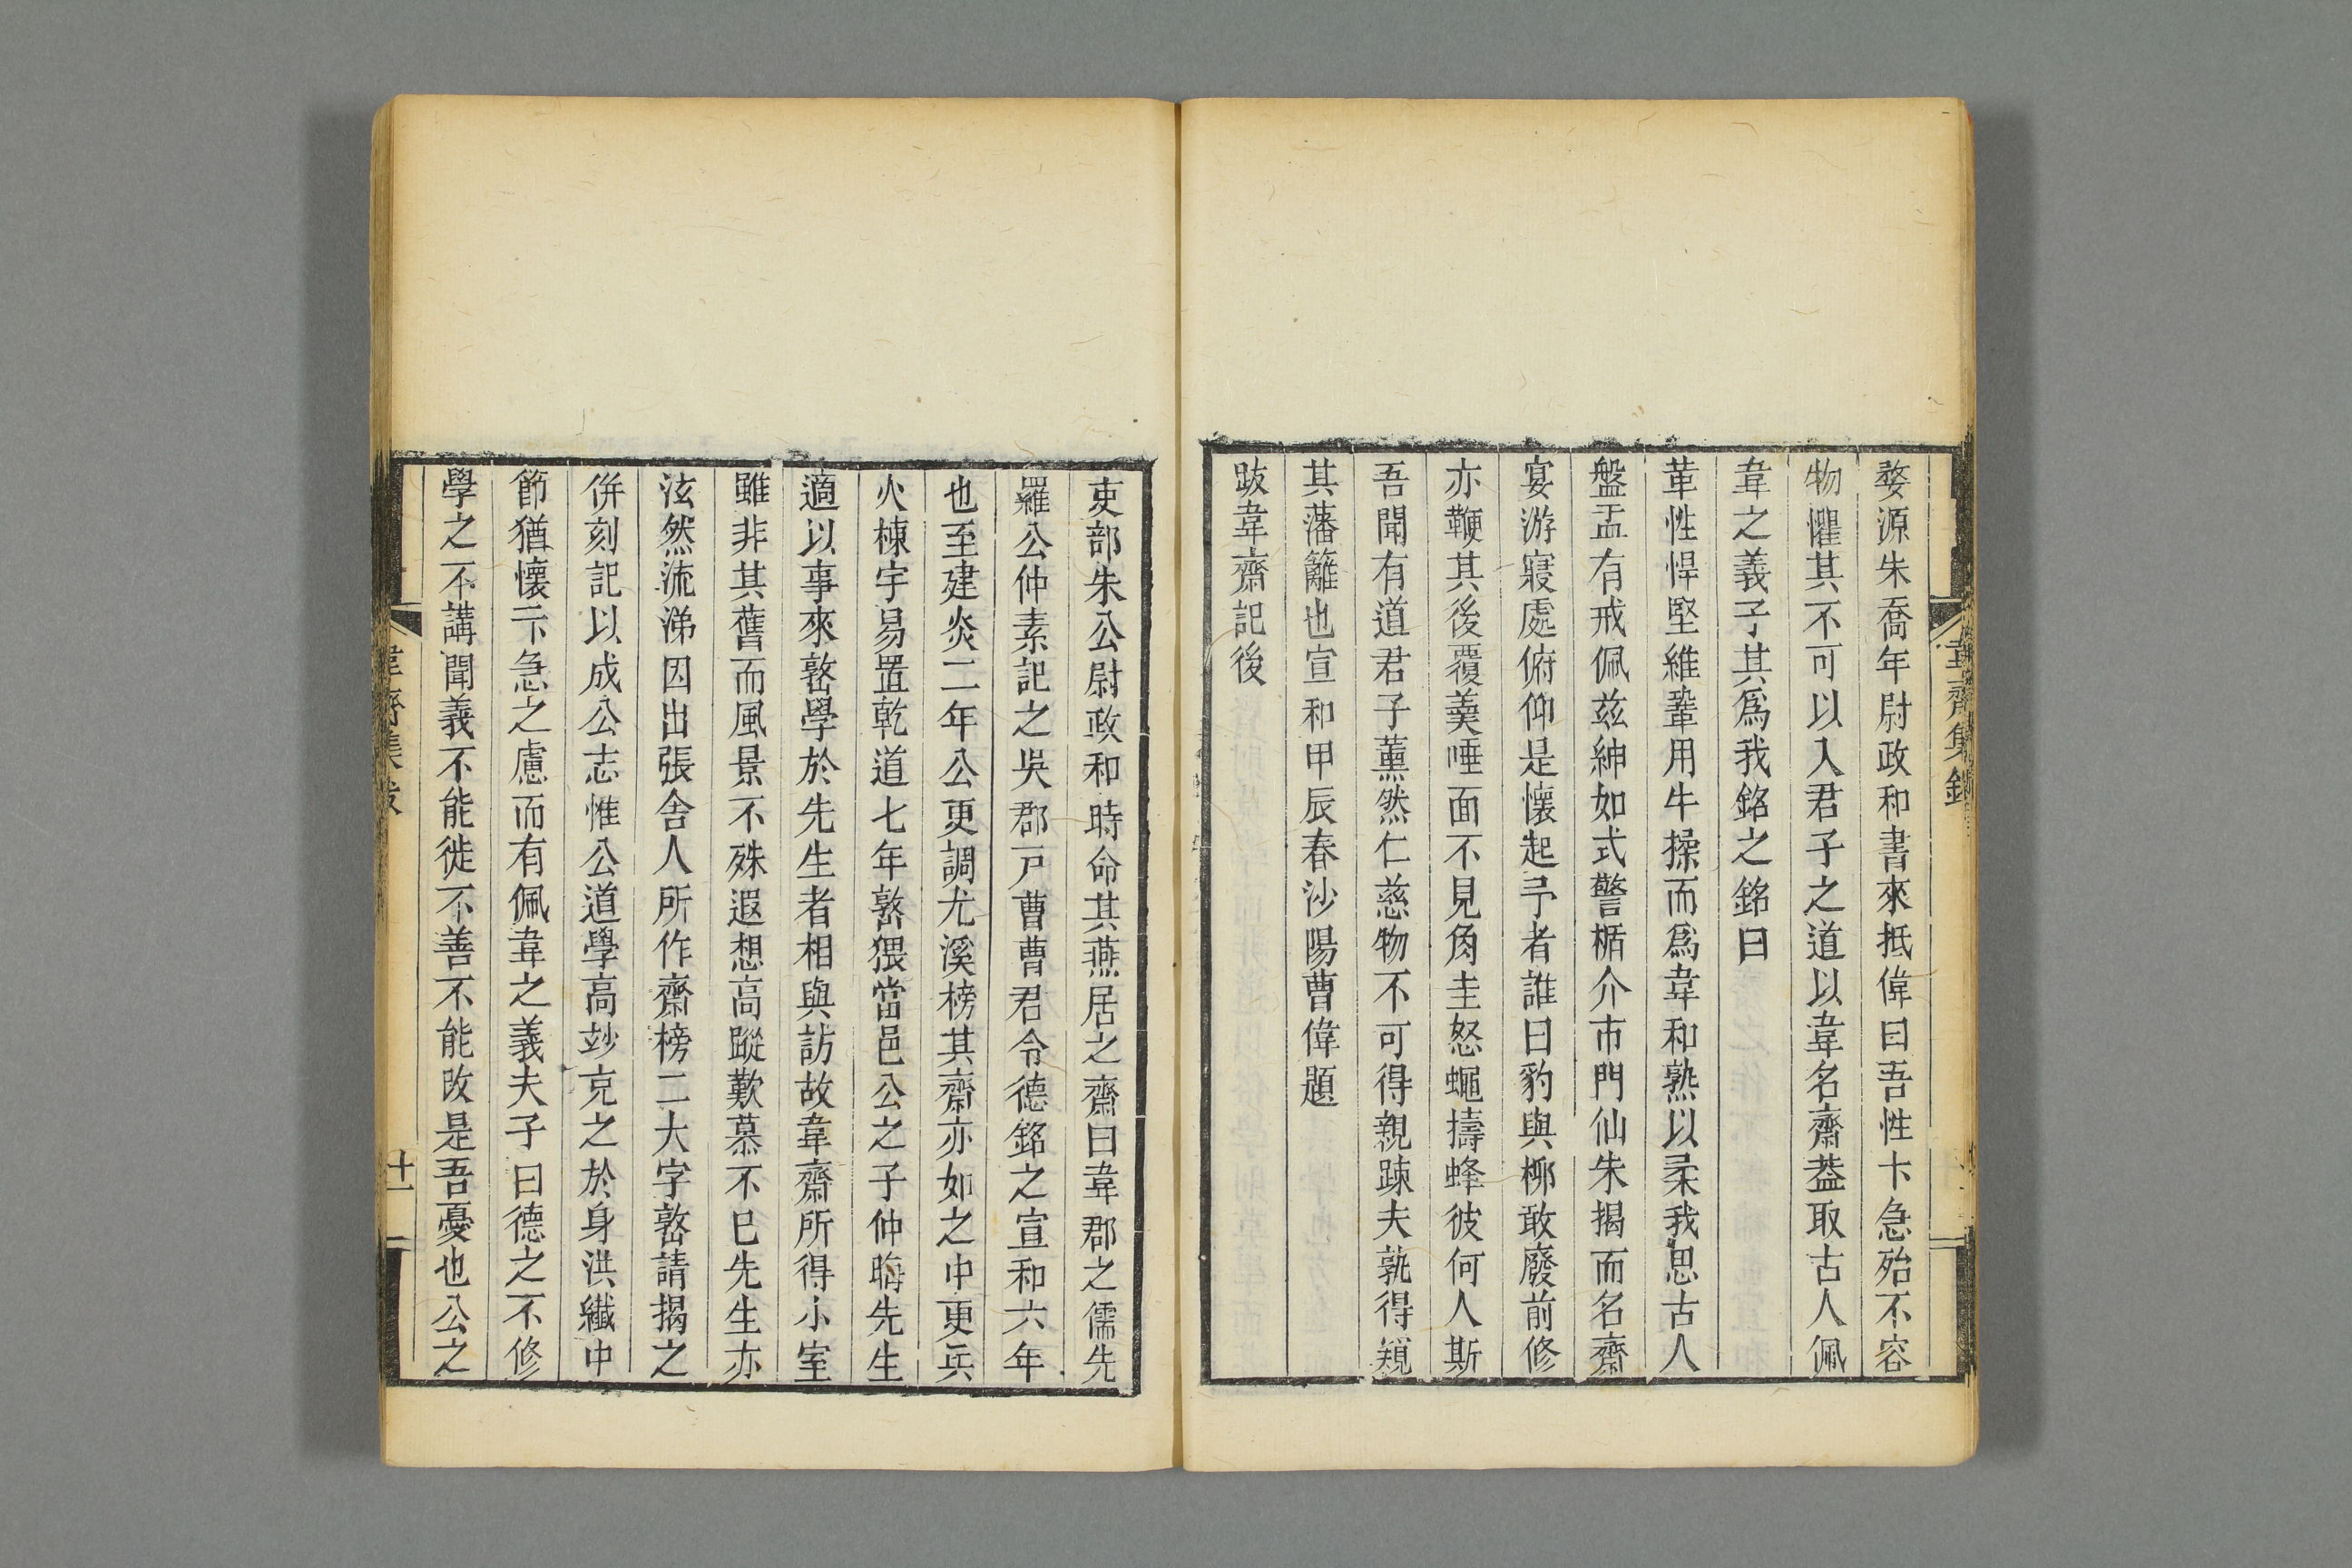 婺源朱喬年尉政和書來抵偉曰吾性卞急殆不容
物懼其不可以入君子之道以韋名齋葢取古人佩
韋之義子其爲我銘之銘曰
革性悍堅維鞏用牛揉而爲韋和熟以柔我思古人
盤盂有戒佩兹紳如式警楯介市門仙朱揭而名齋
宴游寢處俯仰是懷起予者誰曰豹與柳敢廢前修
亦鞭其後覆羹唾面不見角圭怒蠅擣蜂彼何人斯
吾聞有道君子薰然仁慈物不可得親踈夫孰得窺
其藩籬也宣和甲辰春沙陽曹偉題
跋韋齋記後
吏部朱公尉政和時命其燕居之齋曰韋郡之儒先
羅公仲素記之吳郡戸曹曹君令德銘之宣和六年
也至建炎二年公更調尤溪榜其齋亦如之中更兵
火棟宇易置乾道七年𡼖猥當邑公之子仲晦先生
適以事來𡼖學於先生者相與訪故韋齋所得小室
雖非其舊而風景不殊遐想高蹤歎慕不已先生亦
泫然流涕因出張舍人所作齋榜二大字𡼖請揭之
併刻記以成公志惟公道學高玅克之於身洪纖中
節猶懷卞急之慮而有佩韋之義夫子曰德之不修
學之不講聞義不能徙不善不能改是吾憂也公之
韋齋集跋
十一